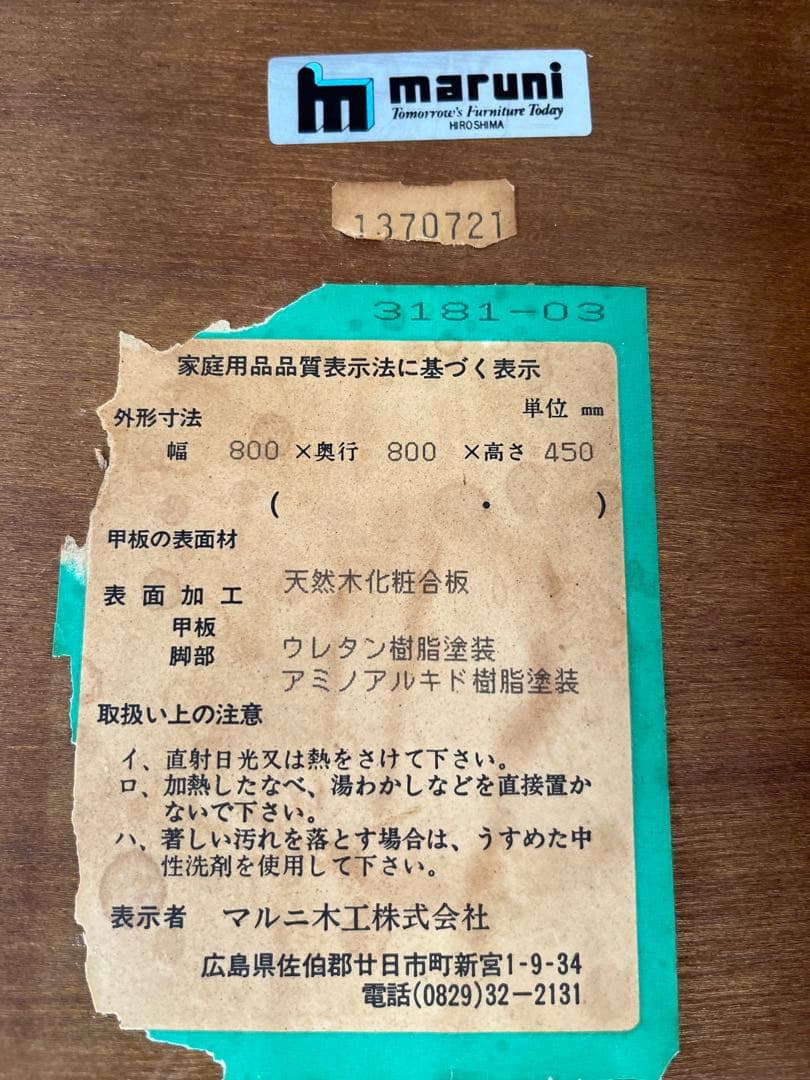 maruni
Tomorrow's Furniture Today
HIROSHIMA
1370721
3181-03
家庭用品品質表示法に基づく表示
外形寸法 単位 mm
幅 800 ×奥行 800 ×高さ 450
( ・ )
甲板の表面材
天然木化粧合板
表面加工
甲板
ウレタン樹脂塗装
脚部
アミノアルキド樹脂塗装
取扱い上の注意
イ、直射日光又は熱をさけて下さい。
ロ、加熱したなべ、湯わかしなどを直接置か
ないで下さい。
ハ、著しい汚れを落とす場合は、うすめた中
性洗剤を使用して下さい。
表示者 マルニ木工株式会社
広島県佐伯郡廿日市町新宮1-9-34
電話(0829)32-2131